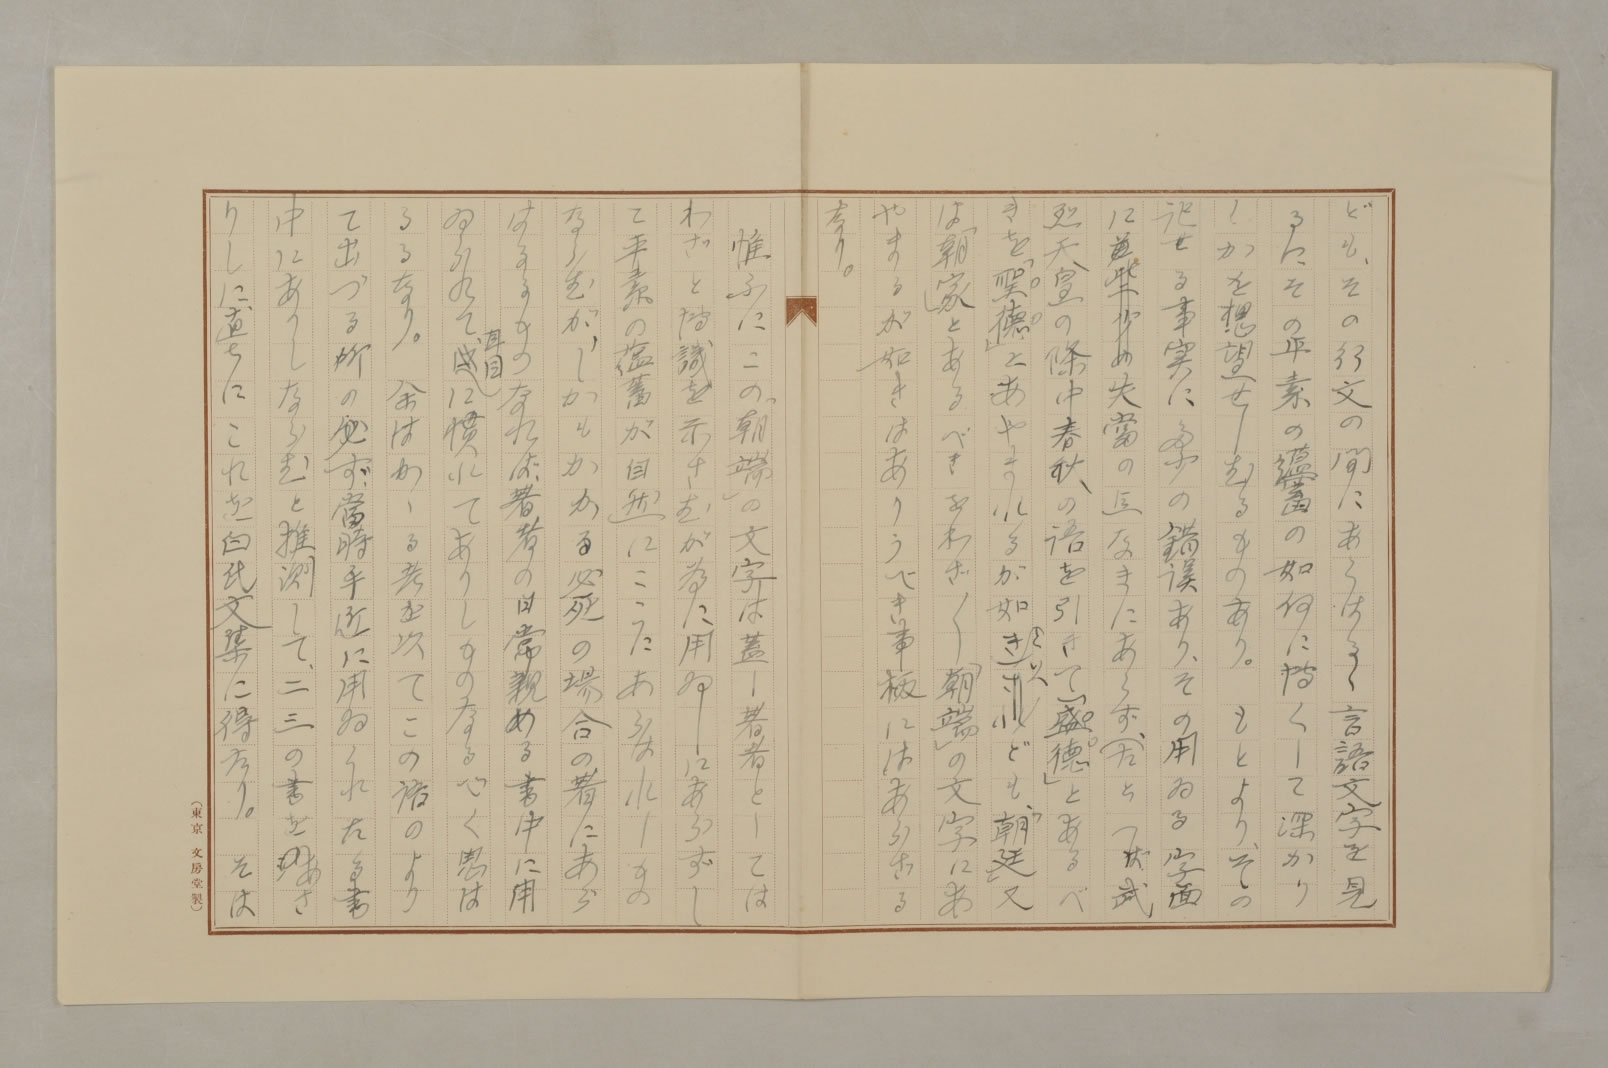 ども、その行文の間にあらはるゝ言語文字を見
るにその平素の蘊蓄の如何に博くして深かり
しかを想望せしむるものあり。もとより、その
記せる事実に多少の錯誤あり、その用ゐる字面
に失當の点なきにあらず(たとへば武
烈天皇の條中春秋の語を引きて「盛德」とあるべ
きを「聖德」とあやまれるが如き)されども「朝廷」又
は「朝家」とあるべきをわざ〱「朝端」の文字にあ
やまるが如きはありうべき事柄にはあらざる
なり。
惟ふにこの「朝端」の文字は蓋し著者としては
わざと博識を示さむが為に用ゐしにあらずし
て平素の蘊蓄が自然にこゝにあらはれしもの
ならむが、しかもかかる必死の場合の著にあら
はるるものなれば著者の日常親める書中に用
ゐられて耳目に慣れてありしものなるべく思は
るるなり。余はかゝる考を以てこの語のより
て出づる所の必ず當時手近に用ゐられたる書
中にありしならむと推測して、二三の書をあさ
りしに直ちにこれを白氏文集に得たり。そは
(東京 文房堂製)